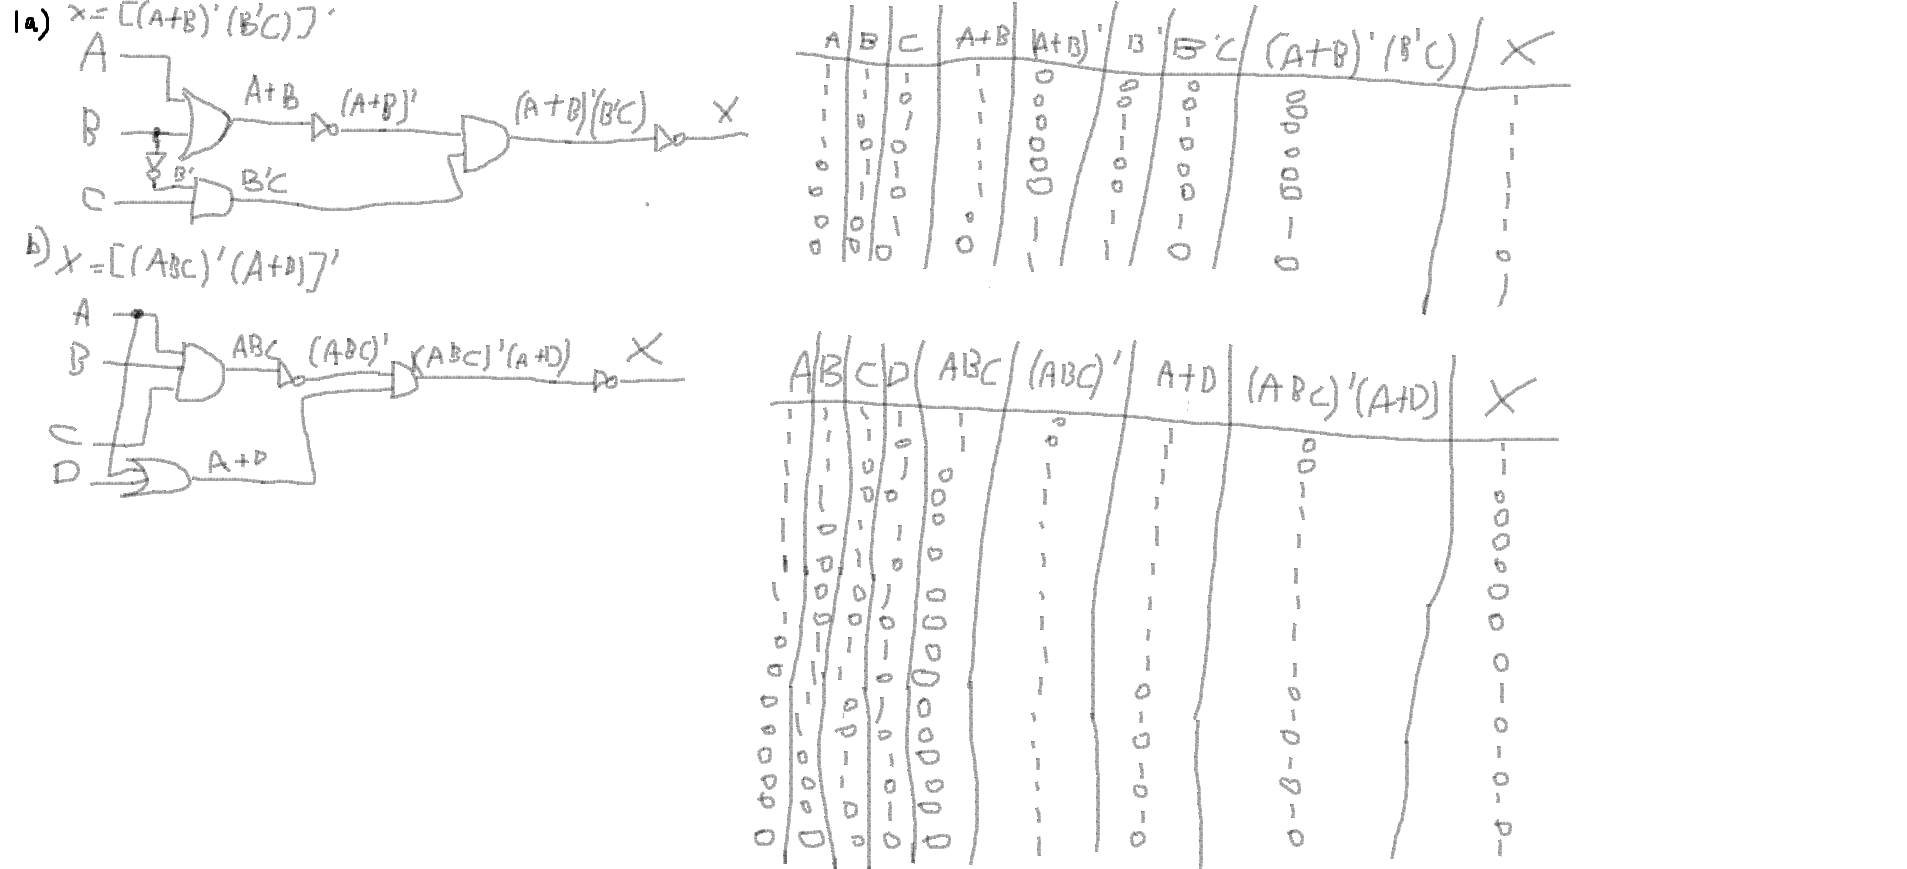 1a) X=[(A+B)'(B'C)]'
A
B
C
A+B
(A+B)'
B'
B'C
(A+B)'(B'C)
X
A B C A+B (A+B)' B' B'C (A+B)'(B'C) X
1 1 1 1 0 0 0 0 1
1 1 0 1 0 0 0 0 1
1 0 1 1 0 1 1 0 1
1 0 0 1 0 1 0 0 1
0 1 1 1 0 0 0 0 1
0 1 0 1 0 0 0 0 1
0 0 1 0 1 1 1 1 0
0 0 0 0 1 1 0 0 1
b) X=[(ABC)'(A+D)]'
A
B
C
D
ABC
(ABC)'
A+D
(ABC)'(A+D)
X
A B C D ABC (ABC)' A+D (ABC)'(A+D) X
1 1 1 1 1 0 1 0 1
1 1 1 0 1 0 1 0 1
1 1 0 1 0 1 1 1 0
1 1 0 0 0 1 1 1 0
1 0 1 1 0 1 1 1 0
1 0 1 0 0 1 1 1 0
1 0 0 1 0 1 1 1 0
1 0 0 0 0 1 1 1 0
0 1 1 1 0 1 1 1 0
0 1 1 0 0 1 0 0 1
0 1 0 1 0 1 1 1 0
0 1 0 0 0 1 0 0 1
0 0 1 1 0 1 1 1 0
0 0 1 0 0 1 0 0 1
0 0 0 1 0 1 1 1 0
0 0 0 0 0 1 0 0 1